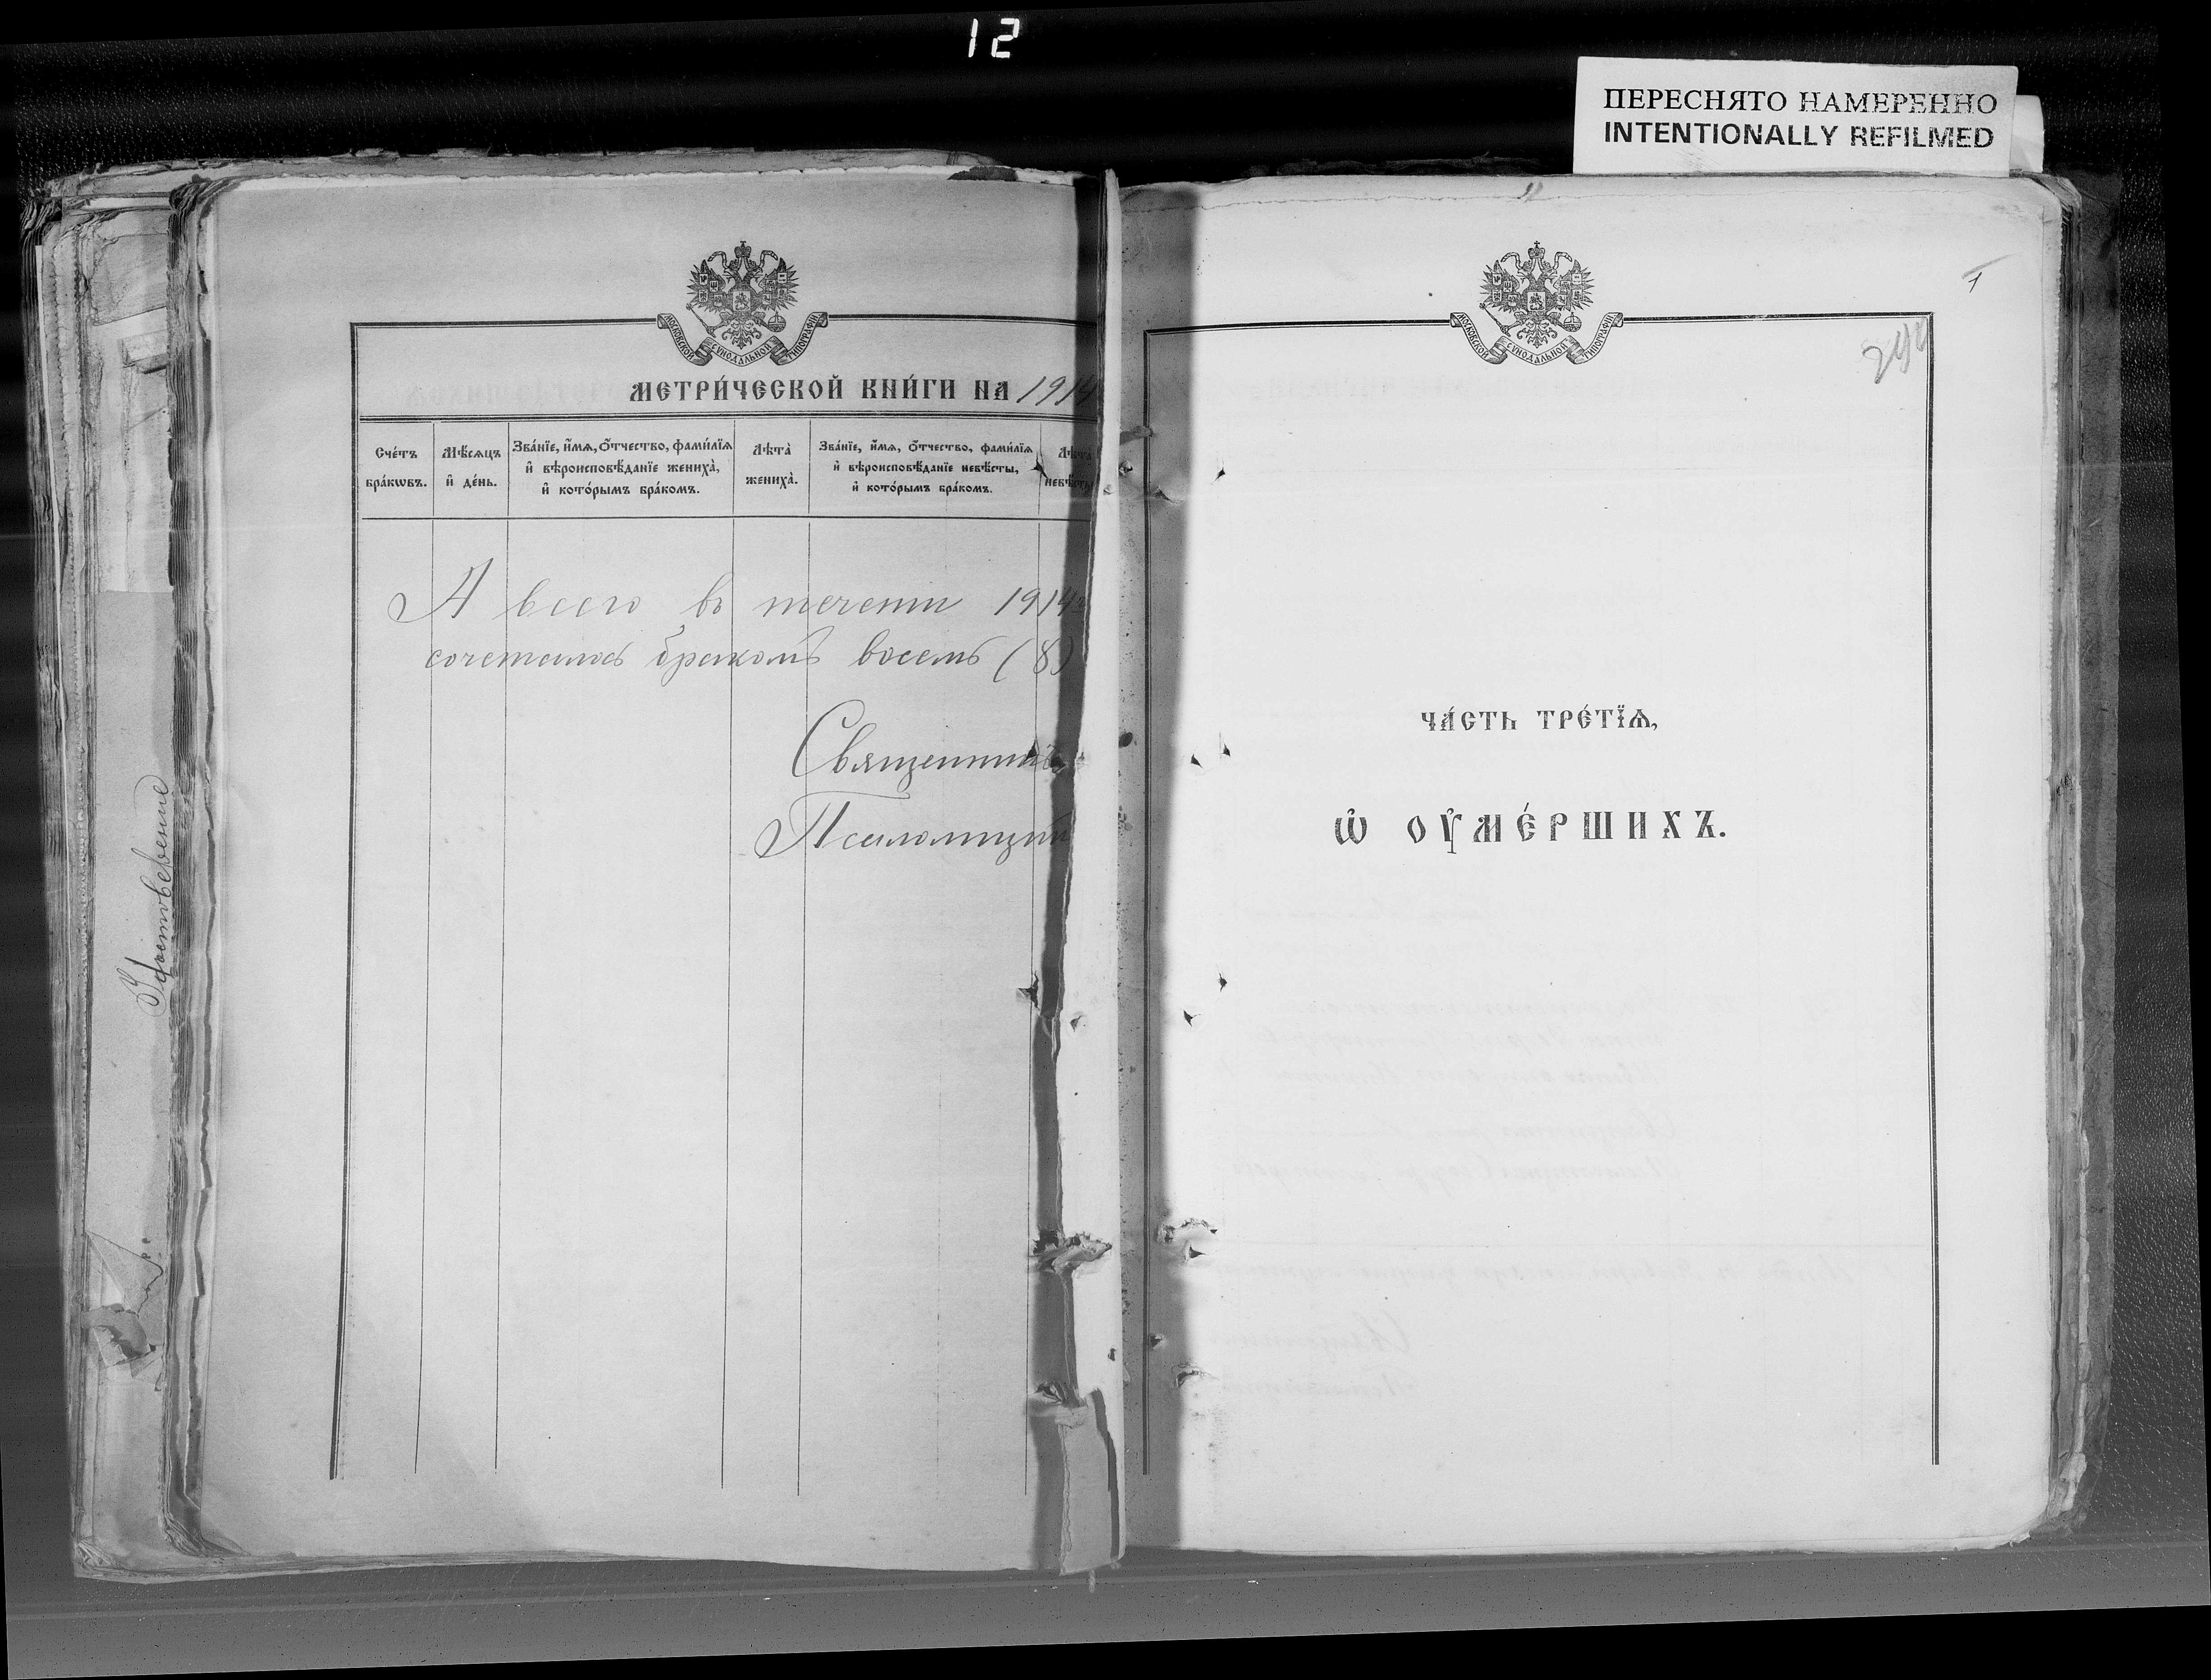 12
ПЕРЕСНЯТО НАМЕРЕННО
INTENTIONALLY REFILMED
МОСКОВСКОЙ СѴНОДАЛЬНОЙ ТИПОГРАФІИ
МЕТРИ́ЧЕСКОЙ КНИ́ГИ НА 1914
Сче́тъ бра́кѡвъ.
Мѣ́сяцъ и҆ де́нь.
Зва́нїе, и҆́мѧ, ѻ҆́тчество, фами́лїѧ
и҆ вѣроисповѣ́данїе жениха̀,
и҆ кото́рымъ бра́комъ.
Лѣта̀ жениха̀.
Зва́нїе, и҆́мѧ, ѻ҆́тчество, фами́лїѧ
и҆ вѣроисповѣ́данїе невѣ́сты,
и҆ кото́рымъ бра́комъ.
Лѣта̀ невѣ́сты
А всего въ течении 1914 г
сочеталось бракомъ восемь (8)
Священникъ
Псаломщик
МОСКОВСКОЙ СѴНОДАЛЬНОЙ ТИПОГРАФІИ
1
ЧА́СТЬ ТРЕ́ТЇѦ,
Ѡ҆ ОУ҆МЕ́РШИХЪ.